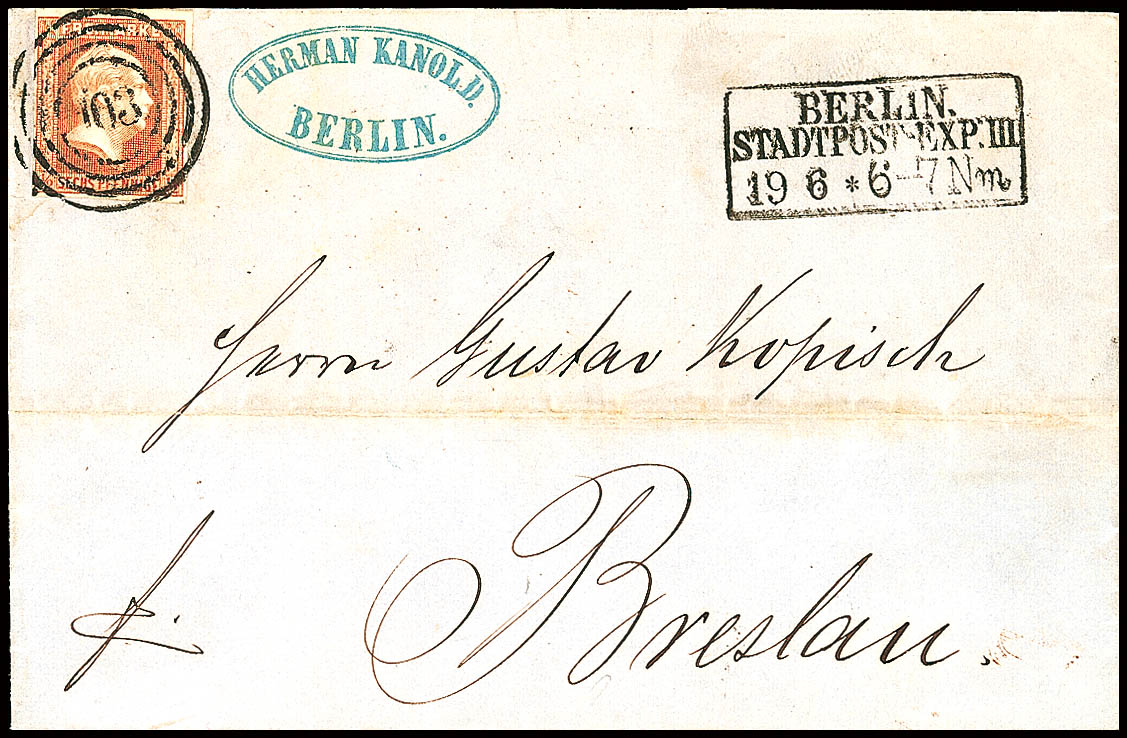 FREIMARKE
103
SECHS PFENNIGE
HERMAN KANOLD.
BERLIN.
BERLIN.
STADTPOST-EXP. III
19 6 * 6-7 Nm
Herrn Gustav Kopisch
fr.
Breslau.